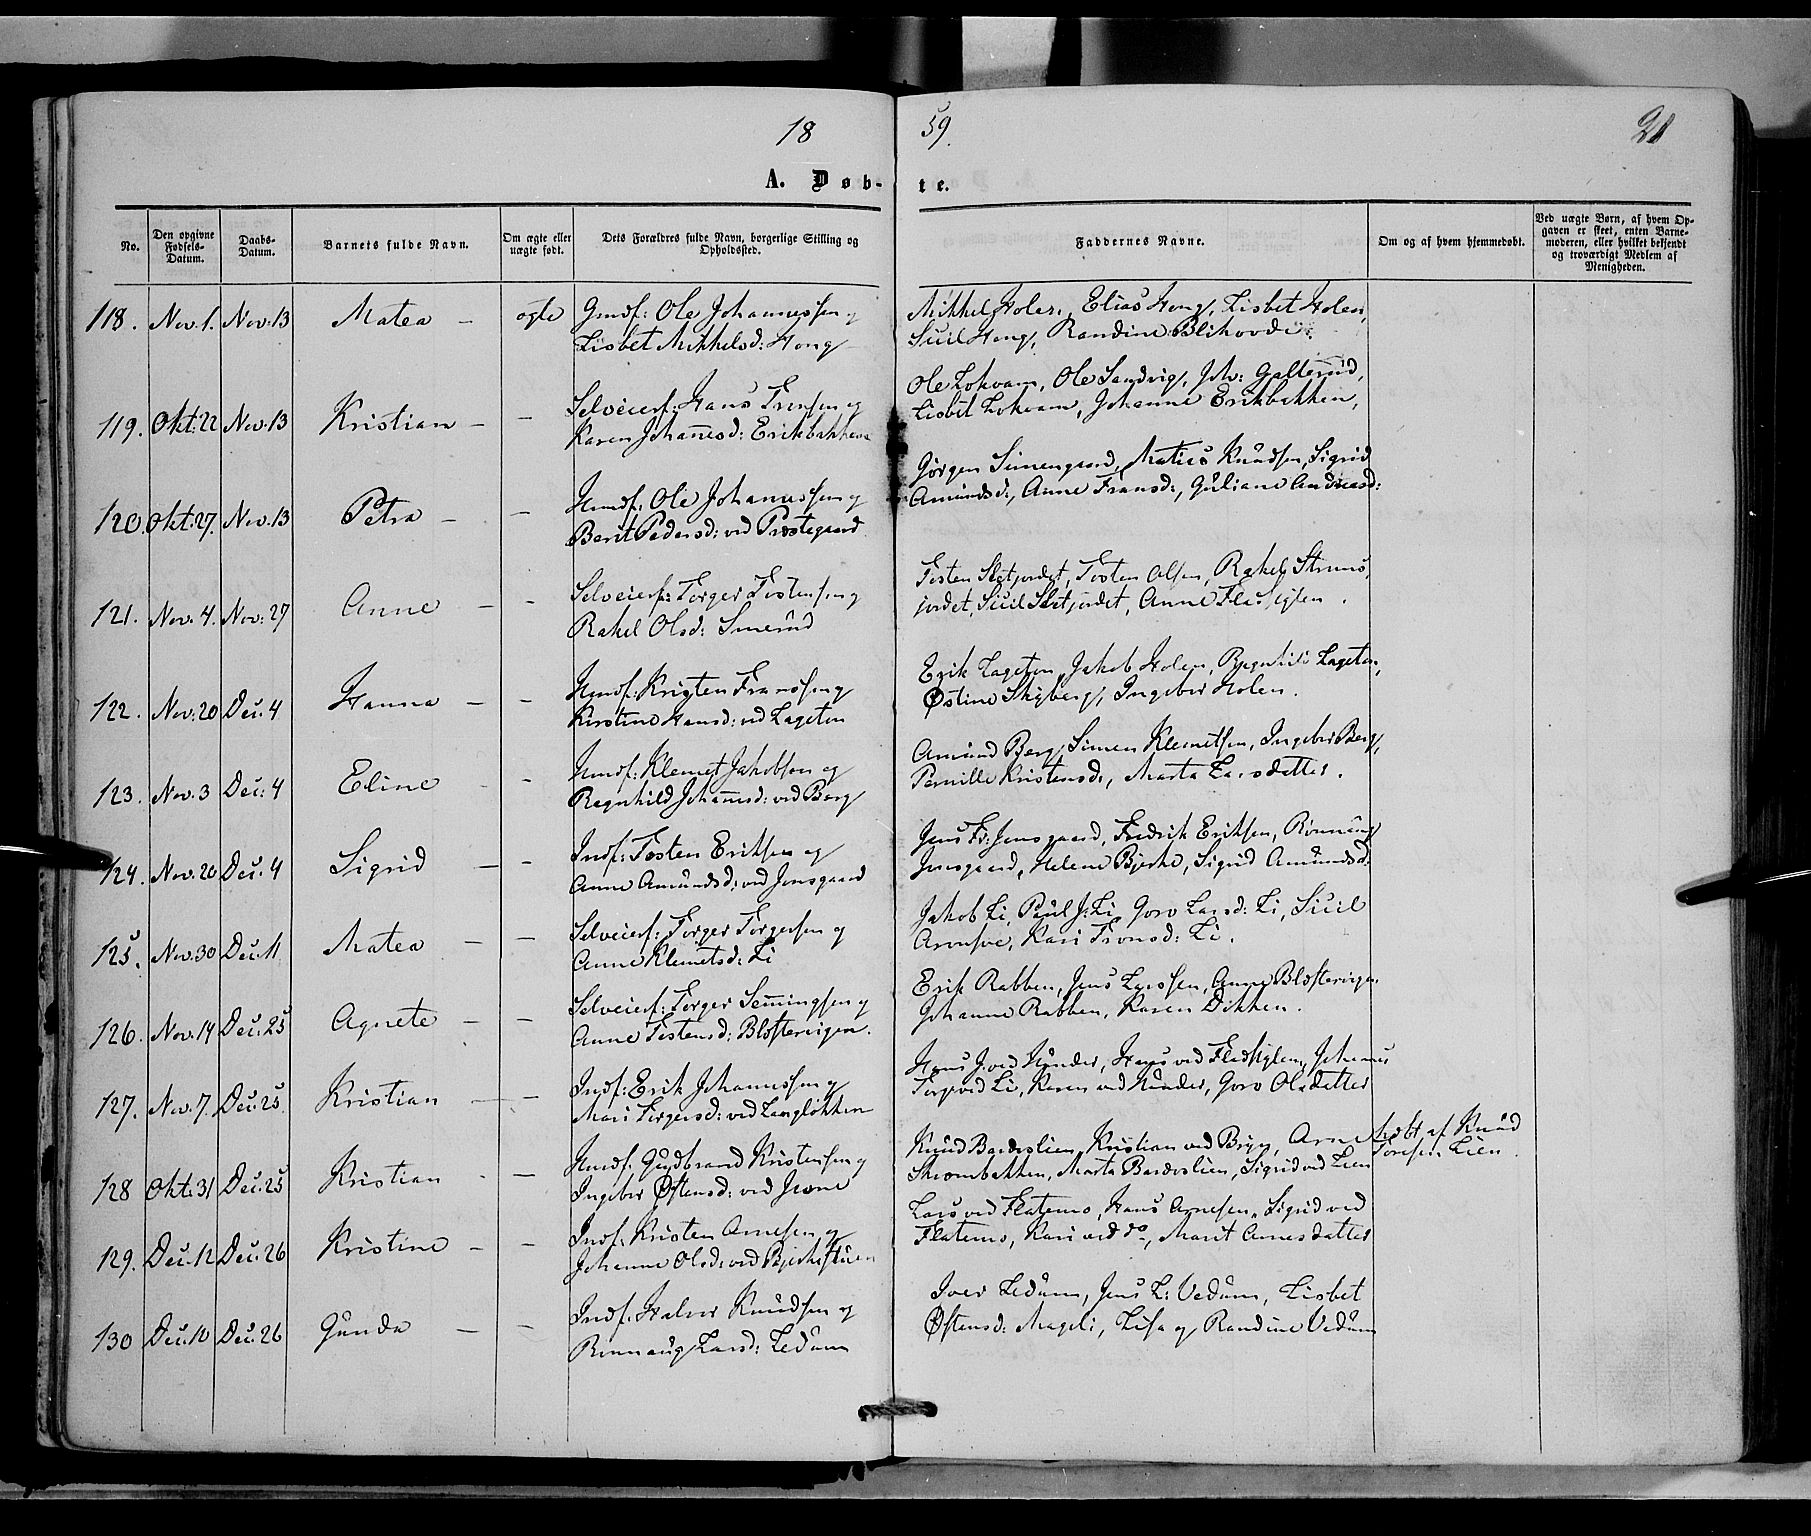 18 59. 21
A. Døb- te.
No.
Den opgivne Fødsels-Datum.
Daabs-Datum.
Barnets fulde Navn.
Om ægte eller uægte født.
Dets Forældres fulde Navn, borgerlige Stilling og Opholdssted.
Faddernes Navne.
Om og af hvem hjemmedøbt.
Ved uægte Børn, af hvem Opgaven er skeet, enten Barnemoderen, eller hvilket bekjendt og troværdigt Medlem af Menigheden.
118. Nov. 1. Nov. 13 Matea – ægte Gmdf: Ole Johannessen og
Lisbet Mikkelsd: Hong
Mikkel Holen, Elias Hong, Lisbet Holen,
Sicil Hong, Randine Blihovde.
119. Okt: 22 Nov. 13 Kristian – – Selveierf: Hans Tronsen og
Karen Johannesd: Erikbakken
Ole Lokvam, Ole Sandvig, Joh: Galterud,
Lisbet Lokvam, Johanne Erikbakken,
120. Okt: 27. Nov. 13 Petra – – Hmdf: Ole Johannessen og
Berit Pedersd: ved Præstegaard
Jørgen Simengaard, Matias Knudsen, Sigrid
Amundsd:, Anne Fransd:, Guliane Andreasd:
121. Nov. 4. Nov: 27 Anne – – Selveierf: Torger Tostensen og
Rakel Olsd: Smerud
Tosten Sletjordet, Tosten Olsen, Rakel Struns-
jordet, Sicil Sletjordet, Anne
122. Nov: 20 Dec. 4 Hanna – – Hmdf: Kristen Fransen og
Kirstine Hansd: ved Lageton
Erik Lageton, Jakob Holen, Ragnhild Lageton,
Østine Skyberg, Ingebor Holen.
123. Nov. 3 Dec: 4 Eline – Hmdf: Klemet Jakobsen og
Ragnhild Johannesd: ved Berg
Amund Berg, Simen Klemetsen, Ingebor Berg,
Pernille Kristensd:, Marta Larsdatter.
124. Nov. 20 Dec. 4 Sigrid – – Indf: Tosten Eriksen og
Anne Amundsd: ved Jonsgaard
Jens Fr: Jonsgaard, Fredrik Eriksen, Rønnaug
Jonsgaard, Helene Bjerke, Sigrid Amundsd:
125. Nov. 30 Dec. 11 Matea – – Selveierf: Torger Torgersen og
Anne Klemetsd: Li
Jakob Li, Paul J: Li, Goro Larsd: Li, Sicil
Aronsve, Kari Tronsd: Li.
126. Nov. 14 Dec: 25 Agnete – – Selveierf: Torger Semmingsen og
Anne Tostensd: Blostervigen.
Erik Rabben, Jens Larssen, Anne Blostervigen
Johanne Rabben, Karen Dokken.
127. Nov. 7. Dec: 25 Kristian – – Indf: Erik Johannessen og
Mari Torgersd: ved Langløkken
Hans J. ved Kinder, Hans ved, Johannes
Torp ved Li, Karen ved Kinder, Goro Olsdatter
128 Okt: 31 Dec: 25 Kristian – – Hmdf: Gudbrand Kristensen og
Ingebor Østensd: ved Jevne
Knud Bardøslien, Kristian ved Bryn, Arne
Skrombakken, Marta Bardøslien, Sigrid ved Lien
hdbt af Knud
Toresen Lien.
129. Dec: 12 Dec: 26 Kristine – – Indf: Kristen Arnesen og
Johanne Olsd: ved Bjerkestuen
Lars ved Flatemo, Hans Arnesen, Sigrid ved
Flatemo, Kari ved do, Marit Arnesdatter
130 Dec: 10 Dec: 26 Gunda – – Indf: Halvor Knudsen og
Rønnaug Larsd: Ledum
Iver Ledum, Jens L: Vedum, Lisbet
Østensd: Mageli, Lisa og Randine Vedum